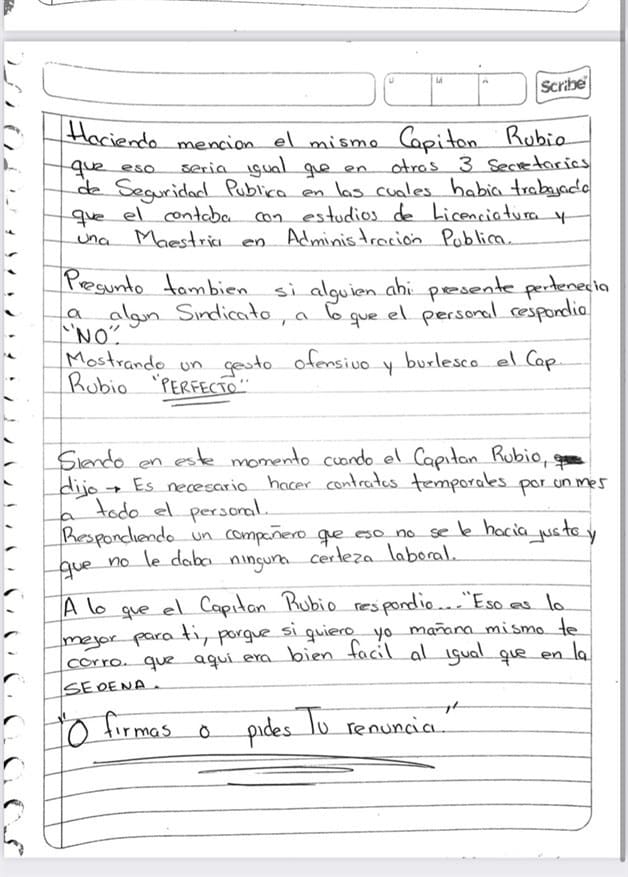 Scribe
Haciendo mencion el mismo Capitan Rubio
que eso seria igual que en otras 3 Secretarias
de Seguridad Publica en las cuales habia trabajado
que el contaba con estudios de Licenciatura y
una Maestria en Administracion Publica.
Pregunto tambien si alguien ahi presente pertenecia
a algun Sindicato, a lo que el personal respondio
"NO".
Mostrando un gesto ofensivo y burlesco el Cap.
Rubio "PERFECTO"
Siendo en este momento cuando el Capitan Rubio,
dijo → Es necesario hacer contratos temporales por un mes
a todo el personal.
Respondiendo un compañero que eso no se le hacia justo y
que no le daba ninguna certeza laboral.
A lo que el Capitan Rubio respondio... "Eso es lo
mejor para ti, porque si quiero yo mañana mismo te
corro. que aqui era bien facil al igual que en la
SEDENA.
"O firmas o pides Tu renuncia."